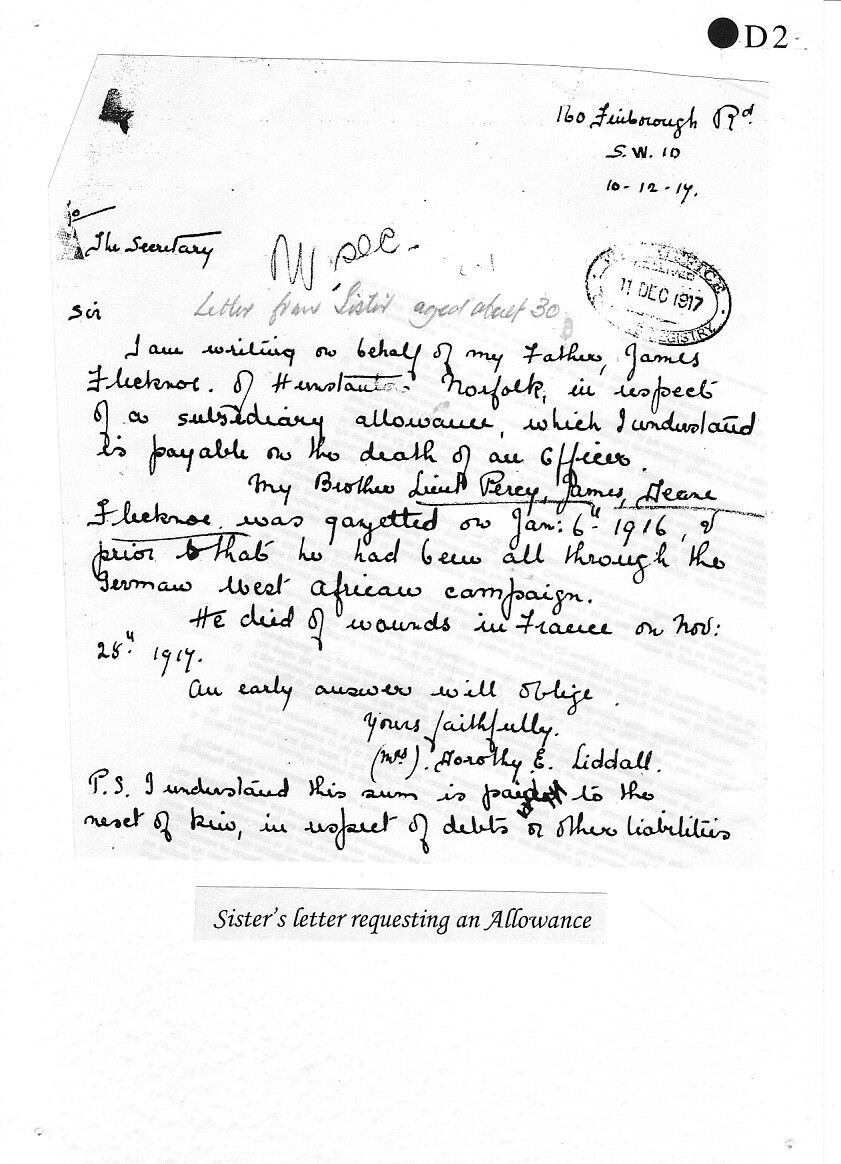 D2
160 Finborough Rd.
S.W. 10
10-12-17.
The Secretary
Sir
Letter from Sister aged about 30
RECEIVED
11 DEC 1917
REGISTRY
I am writing on behalf of my Father, James
Flecknoe. of Hunstanton Norfolk, in respect
of a subsidiary allowance, which I understand
is payable on the death of an Officer.
My Brother Lieut Percy, James, Deane
Flecknoe. was gazetted on Jan: 6th 1916, &
prior to that he had been all through the
German West African campaign.
He died of wounds in France on Nov:
28th 1917.
An early answer will oblige.
Yours faithfully.
(Mrs). Dorothy E. Liddall.
P.S. I understand this sum is paid to the
next of kin, in respect of debts or other liabilities
Sister's letter requesting an Allowance